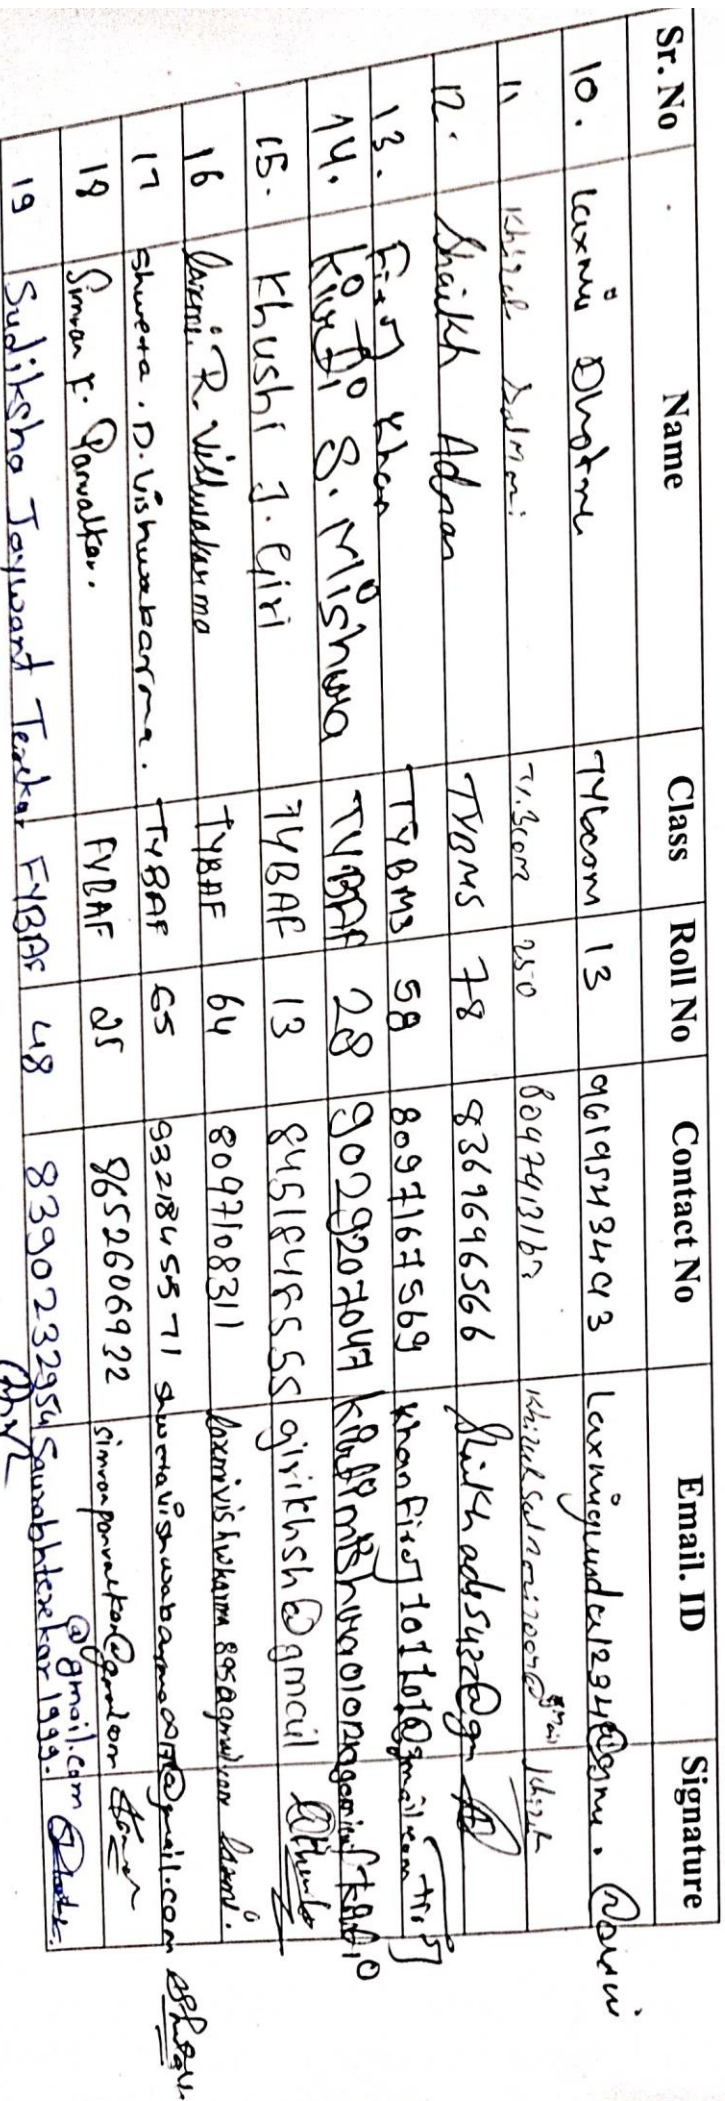 Sr. No Name Class Roll No Contact No Email. ID Signature
10. Laxmi Dhotre TYbcom 13 9619543493 Laxmigunda1234@gm.
11 Khizal Salmani TY.Bcom 250
12. Shaikh Adnan TYBMS 78 8369696566
13. Firoj Khan TYBMS 58 8097167569 khanfiroj101701@gmail.com Firoj
14. Kirti S. Mishra TYBAF 28 9029207047 Kirti
15. Khushi J. Giri TYBAF 13 8451848555 girikhsh@gmail
16 Laxmi. R. Vishwakarma TYBAF 64 8097108311 laxmivishwkarma895@gmail.com Laxmi.
17 Shweta. D. Vishwakarma. TYBAF 65 9321845571
18 Simran Y. Parvalkar. FYBAF 25 8652606922
19 Sudiksha Jaywant Terekar FYBAF 48 8390232954 Saurabhterekar1999.
@gmail.com